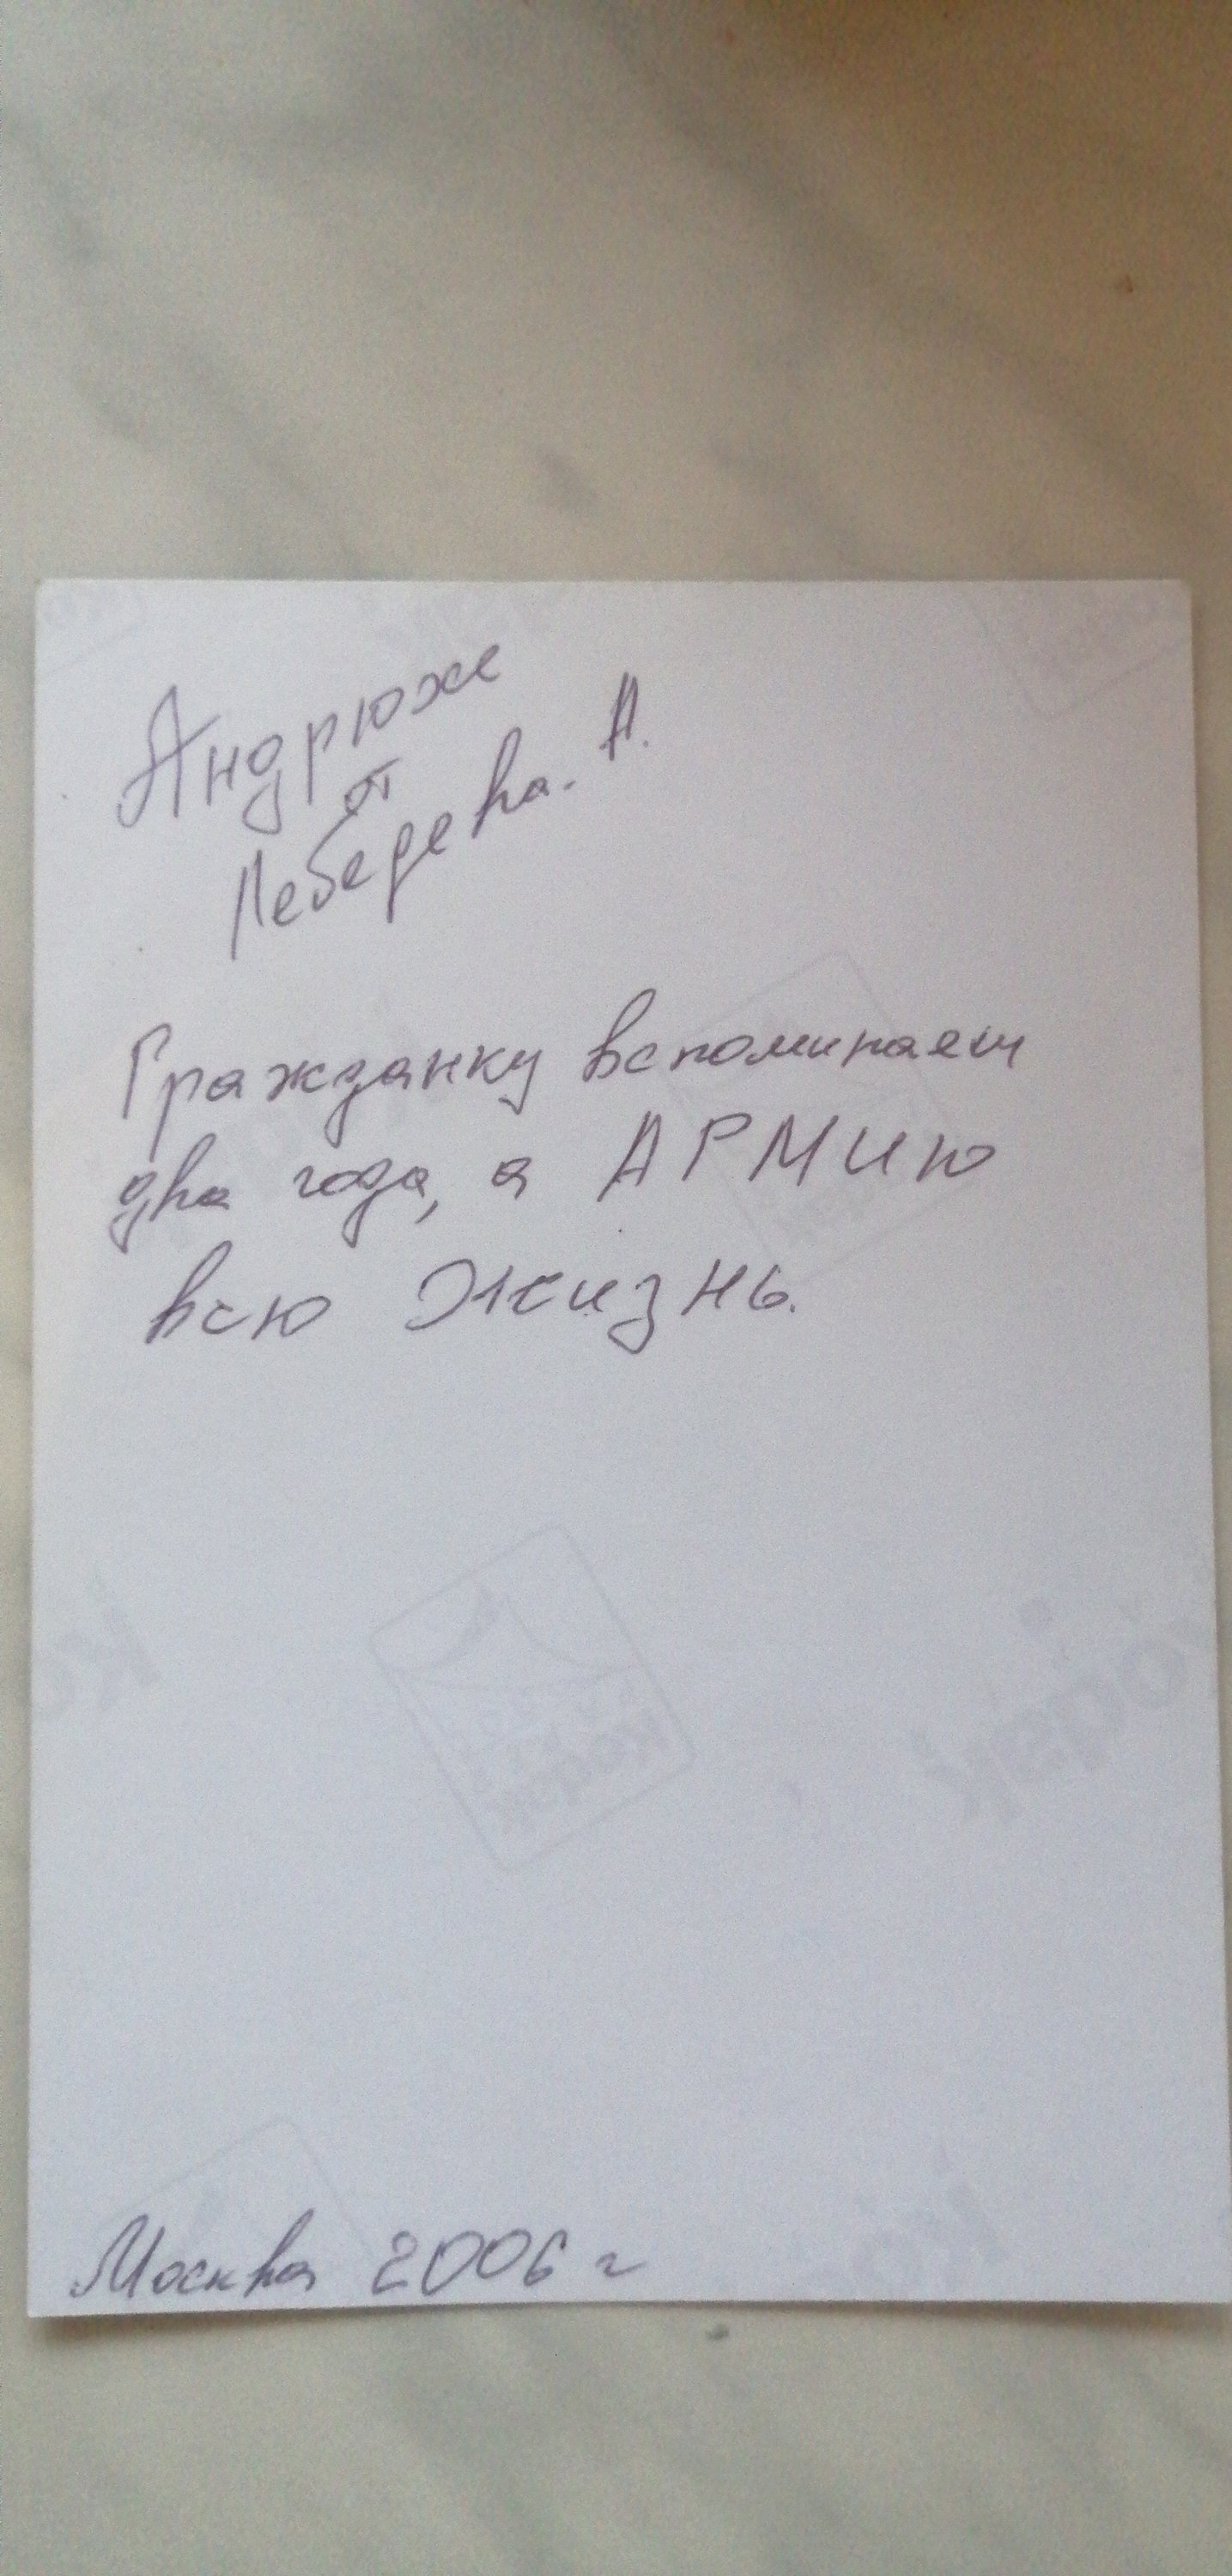 Андрюхе
от
Лебедева. А.
Гражданку вспоминаем
два года, а АРМИЮ
всю Жизнь.
Kodak
Москва 2006 г